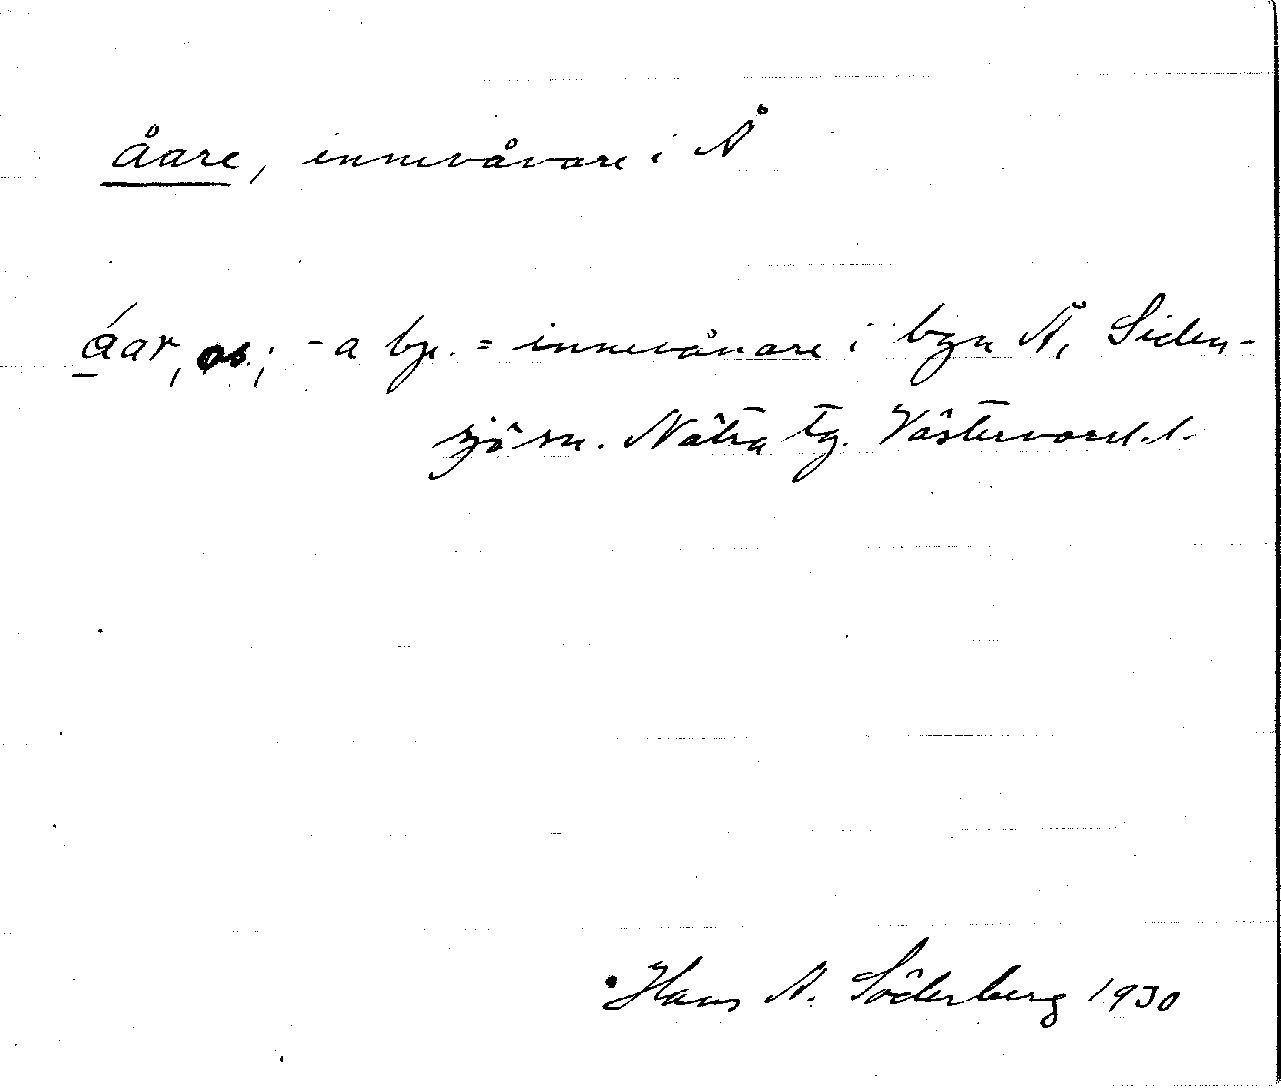 åare, innevånare i Å
åar, os.; -a bp. = innevånare i byn Å, Siden-
sjö sn. Nätra tg. Västernorrl. l.
Hans A. Söderberg 1930